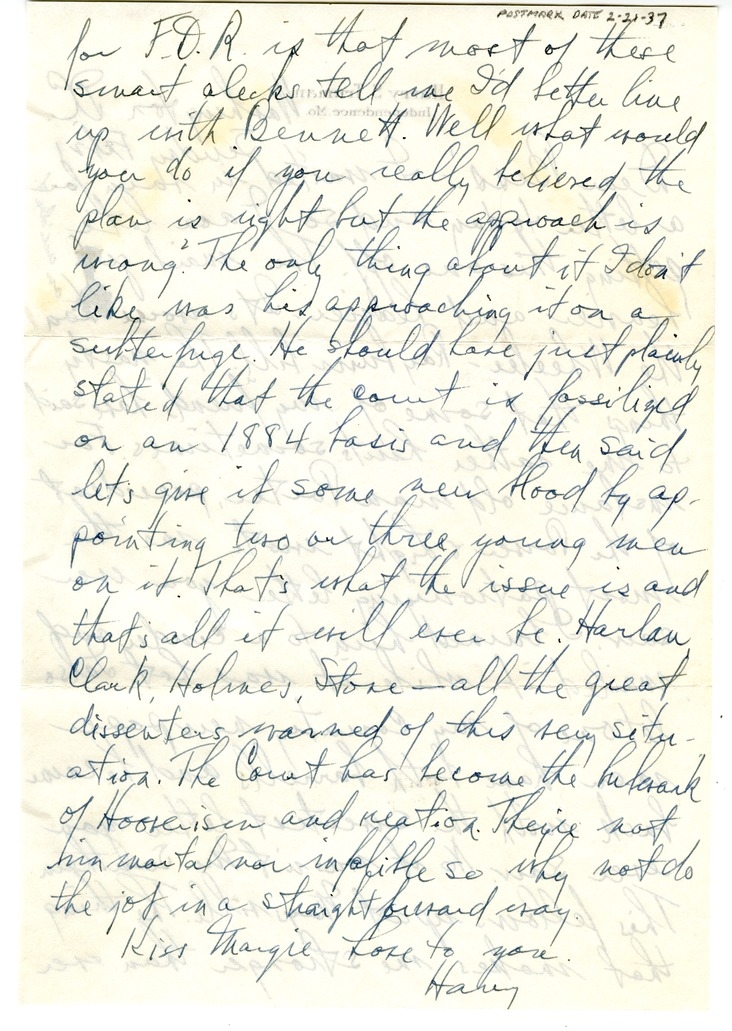 POSTMARK DATE 2-21-37
for F.D.R. is that most of these
smart alecks tell me I'd better line
up with Bennett. Well what would
you do if you really believed the
plan is right but the approach is
wrong? The only thing about it I don't
like was his approaching it on a
subterfuge. He should have just plainly
stated that the court is fossilized
on an 1884 basis and then said
let's give it some new blood by ap-
pointing two or three young men
on it. That's what the issue is and
that's all it will ever be. Harlan,
Clark, Holmes, Stone—all the great
dissenters warned of this very situ-
ation. The Court has become the bulwark
of Hooverism and reaction. They're not
immortal nor infalible so why not do
the job in a straightforward way.
Kiss Margie Love to you.
Harry